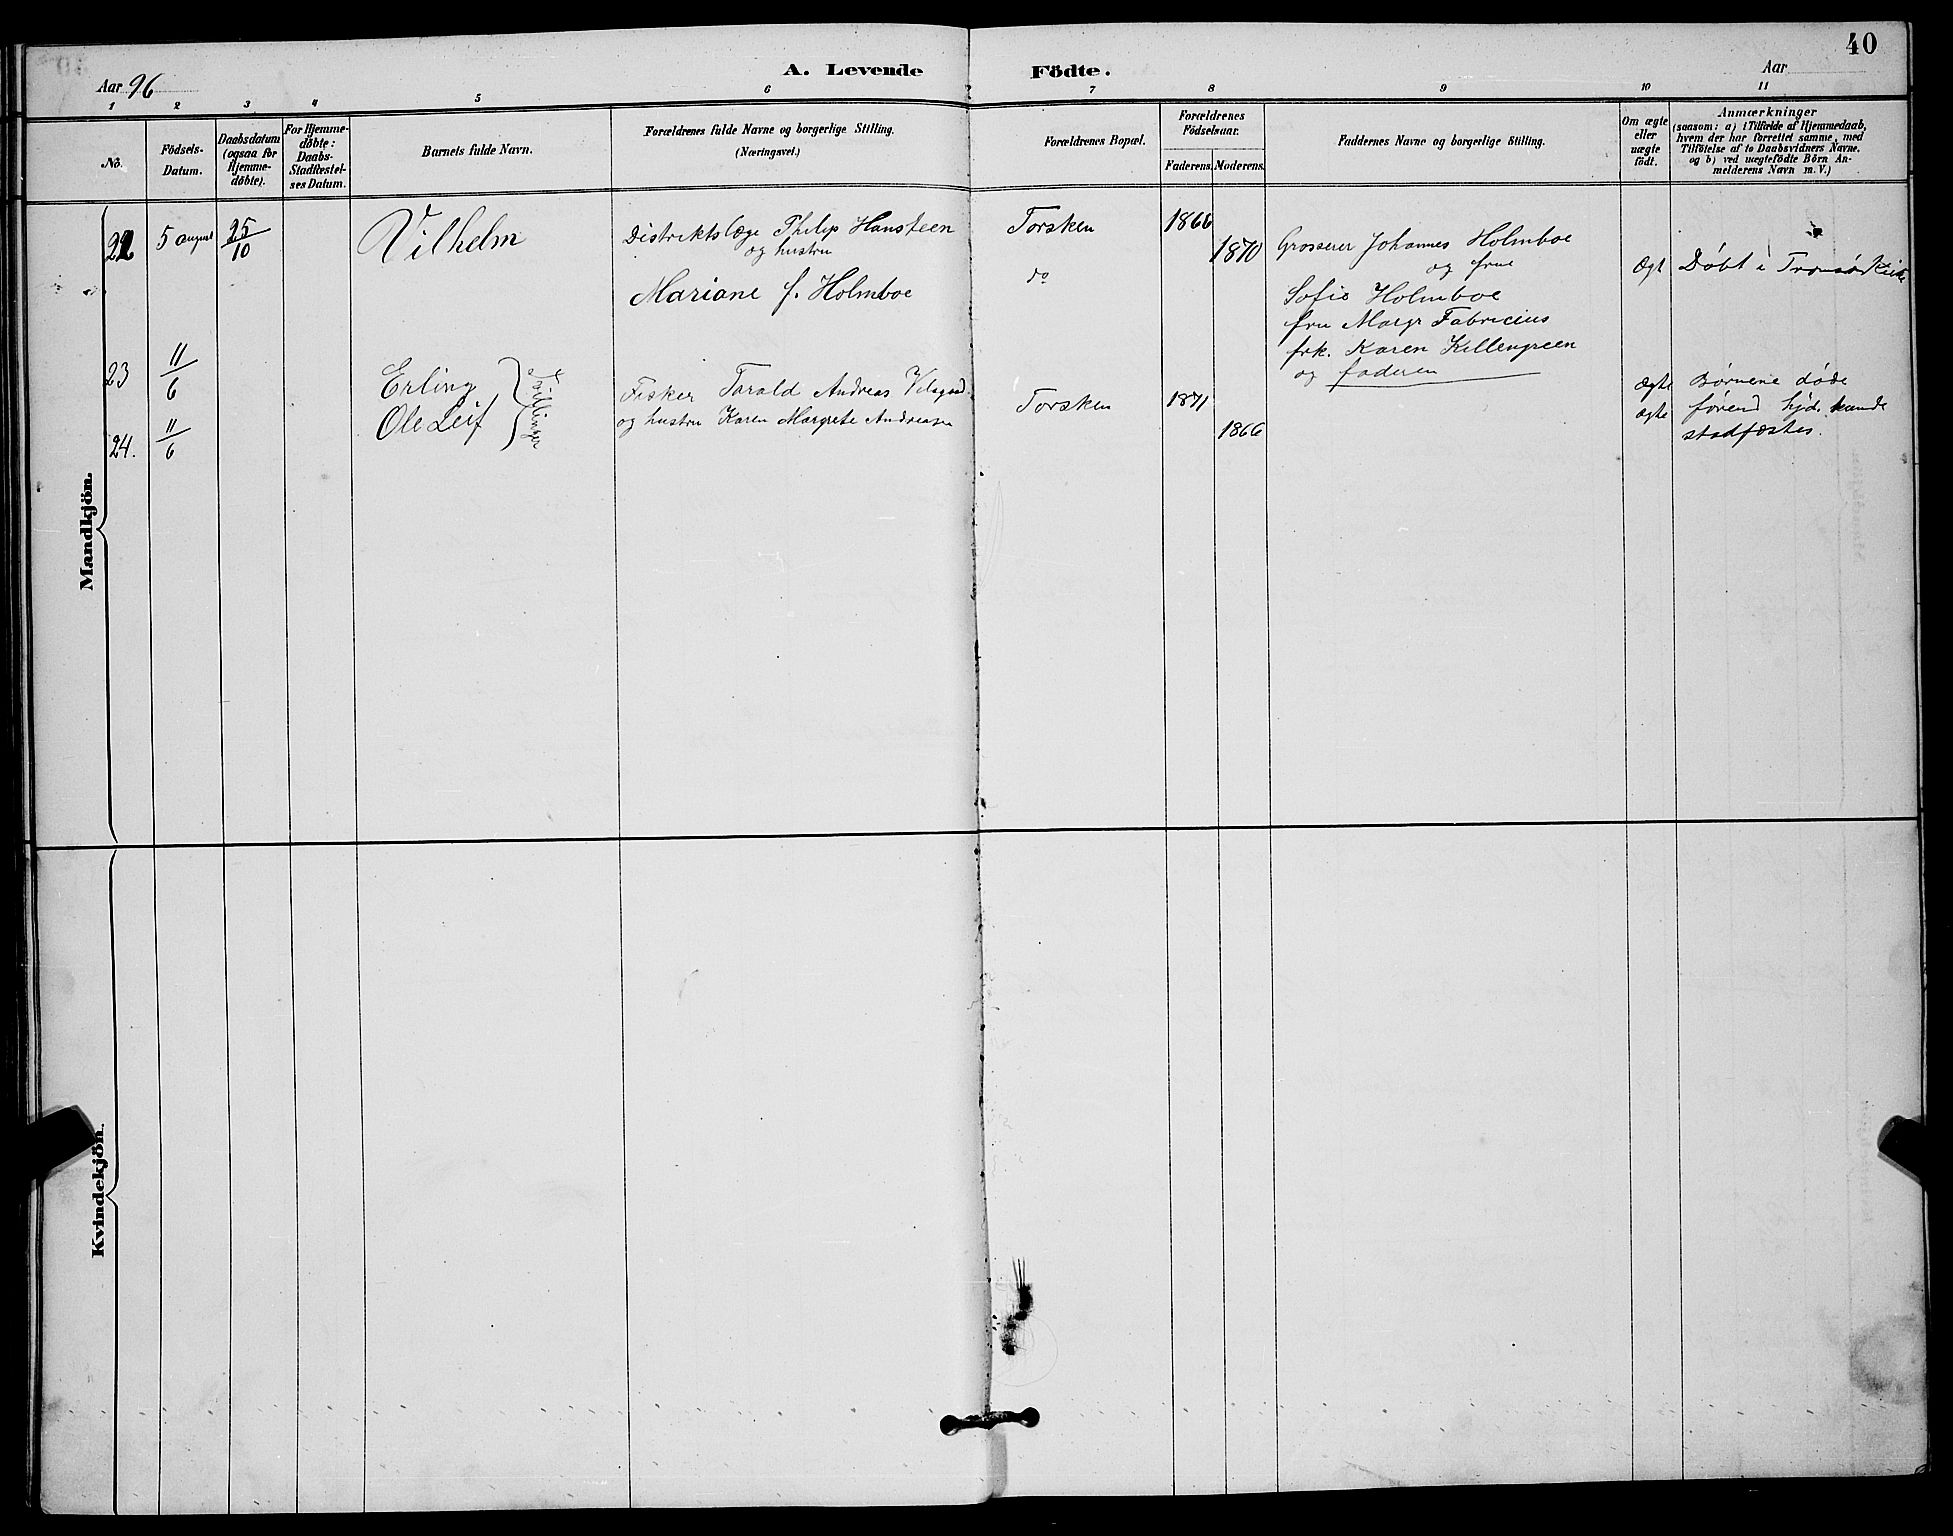 40
Aar 96
A. Levende Födte.
Aar
1 2 3 4 5 6 7 8 9 10 11
No.
Födsels-
Datum.
Daabsdatum
(ogsaa for
Hjemme-
döbte).
For Hjemme-
döbte:
Daabs-
Stadfæstel-
ses Datum.
Barnets fulde Navn.
Forældrenes fulde Navne og borgerlige Stilling.
(Næringsvei.)
Forældrenes Bopæl.
Forældrenes
Födselsaar.
Faderens. Moderens.
Faddernes Navne og borgerlige Stilling.
Om ægte
eller
uægte
födt.
Anmærkninger
(saasom: a) i Tilfælde af Hjemmedaab,
hvem der har forrettet samme, med
Tilföielse af to Daabsvidners Navne.
og b) ved uægtefödte Börn An-
melderens Navn m. V.)
Mandkjön.
22 5 august 25/10 Vilhelm
Distriktslæge Philip Hansteen
og hustru
Mariane f. Holmboe
Torsken
do
1866
1870
Grosserer Johannes Holmboe
og frue
Sofie Holmboe
fru Margr Fabricius
frk. Karen Killengreen
og faderen
Ægt
Døbt i Tromsø Kirke
23 11/6 Erling
24. 11/6 Ole Leif
Tvillinger
Fisker Torald Andreas
og hustru Karen Margrete Andreasen
Torsken
1871
1866
ægte
ægte
Børnene døde
førend hjd. kunde
stadfæstes.
Kvindekjön.